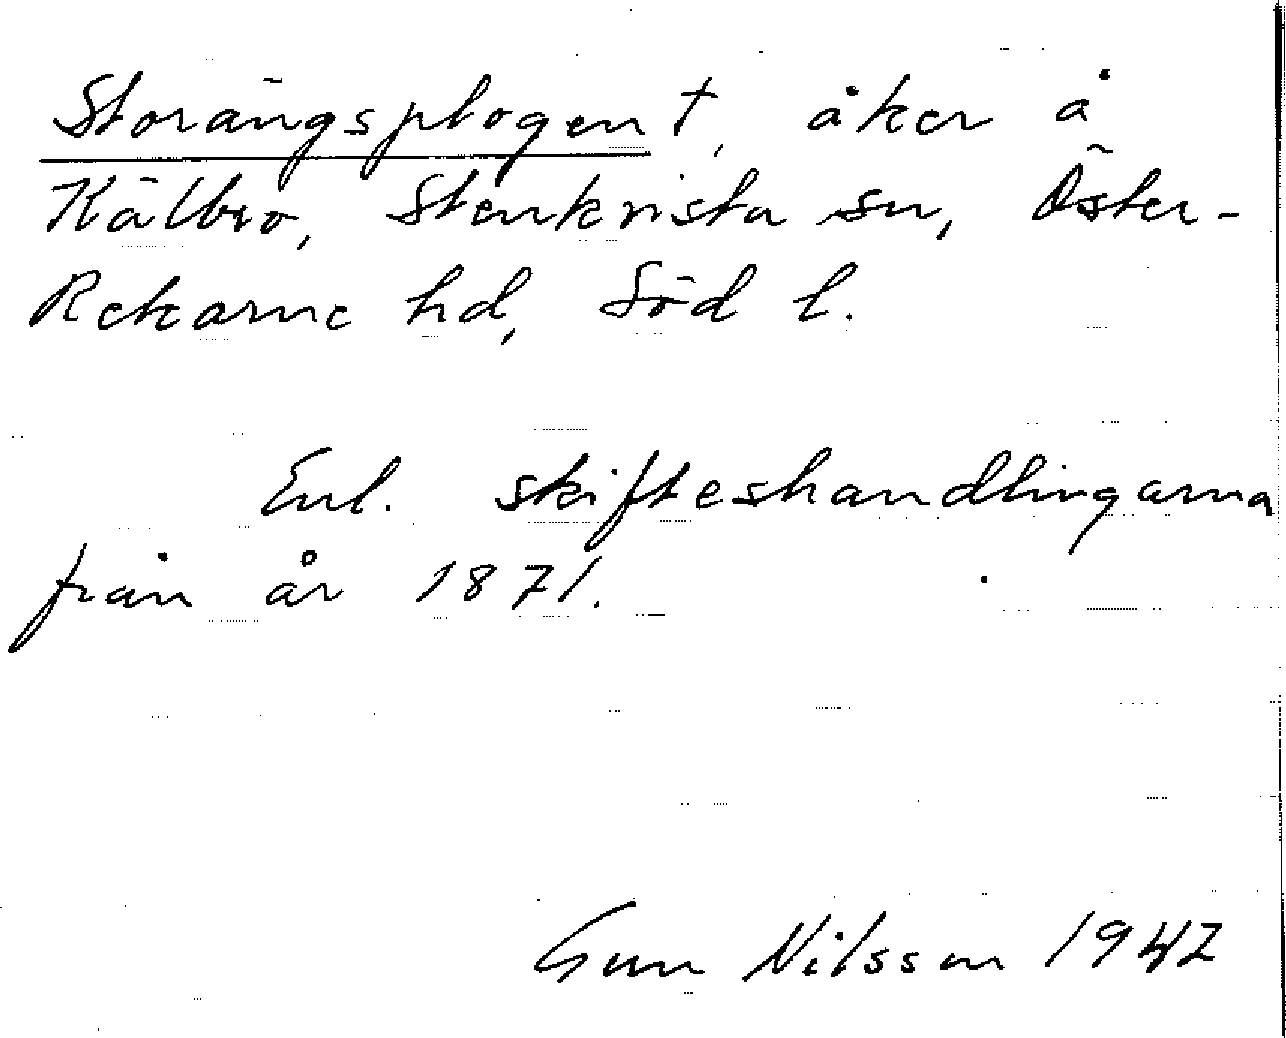 Storängsplogen †, åker å
Kälbro, Stenkvista sn, Öster-
Rekarne hd, Söd l.
Enl. skifteshandlingarna
från år 1871.
Gun Nilsson 1942